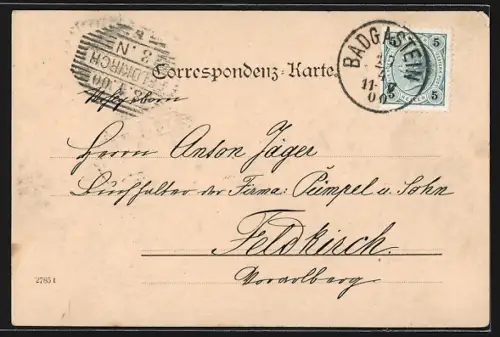 Correspondenz-Karte.
BADGASTEIN
11-
00
5 5
FELDKIRCH
N
00
Herrn Anton Jäger
Buchhalter der Firma: Pümpel u. Sohn
Feldkirch.
Vorarlberg.
27851